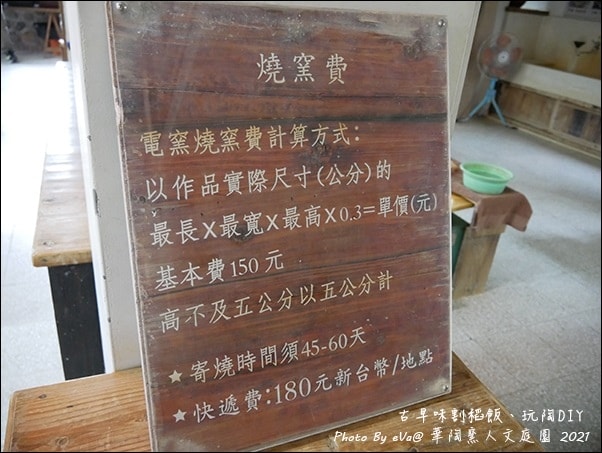 燒窯費
電窯燒窯費計算方式:
以作品實際尺寸(公分)的
最長X最寬X最高X0.3=單價(元)
基本費150元
高不及五公分以五公分計
★寄燒時間須45-60天
★快遞費:180元新台幣/地點
古早味割稻飯、玩陶DIY
Photo By eVa@ 華陶窯人文庭園 2021